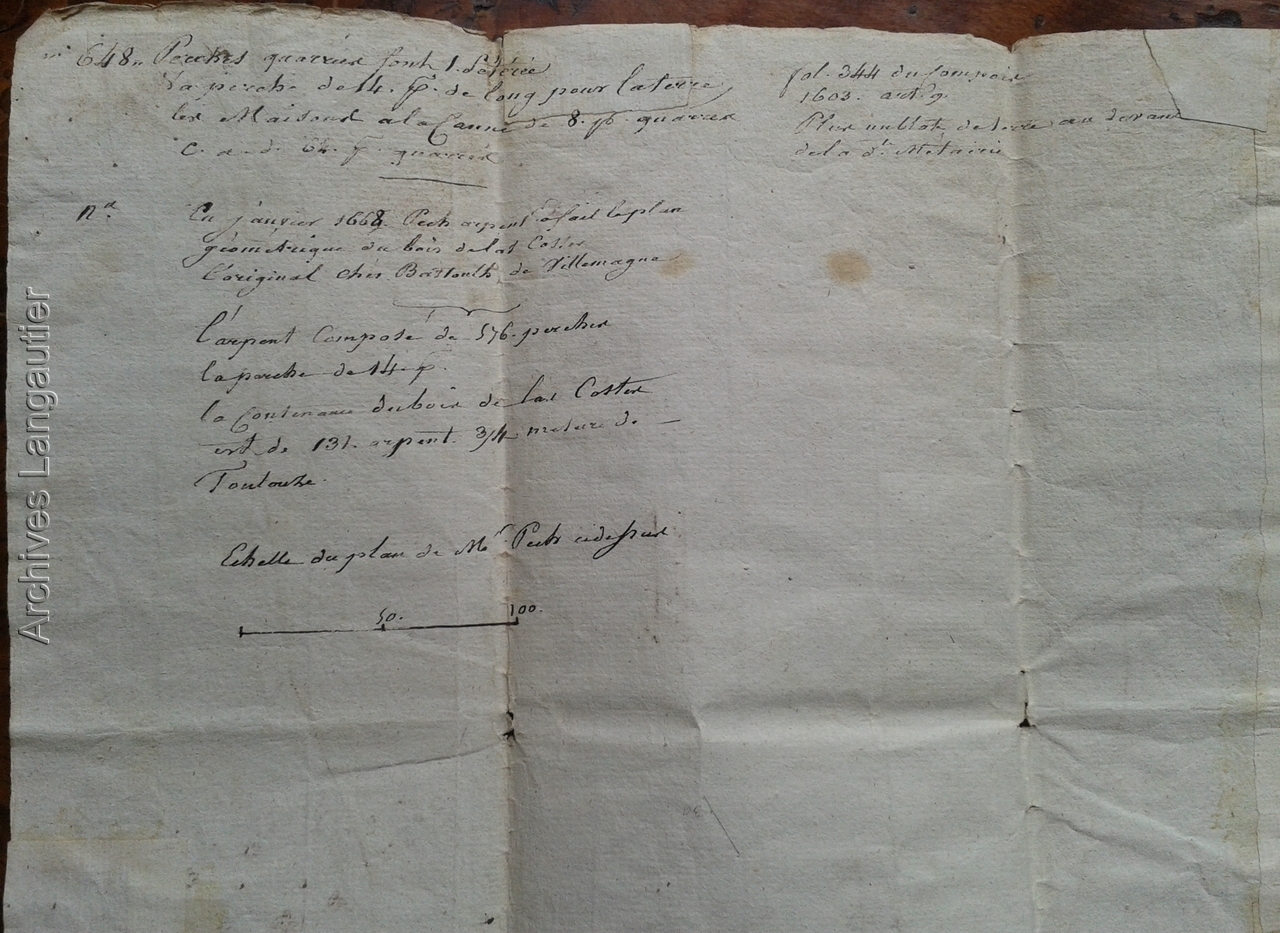 648. Perches quarrées font 1. Seterée
La perche de 14. p. de long pour la terre,
les Maisons a la Canne de 8. p. quarrés
C. a. d. 64. p. quarrés
fol. 344 du Compoix
1603. art. 9
Plus un blot de terre au devant
de la de. Metairie
nta.
En janvier 1668. Pech arpent. a fait le plan
géometrique du bois de las Costes
L'original chés Bastoulh de Villemagne
l'arpent Composé de 576. perches
la perche de 14. p.
la Contenance du bois de las Costes
est de 131. arpent. 3/4 mesure de
Toulouse.
Echelle du plan de Mr. Pech cidessus
50. 100.
Archives Langautier